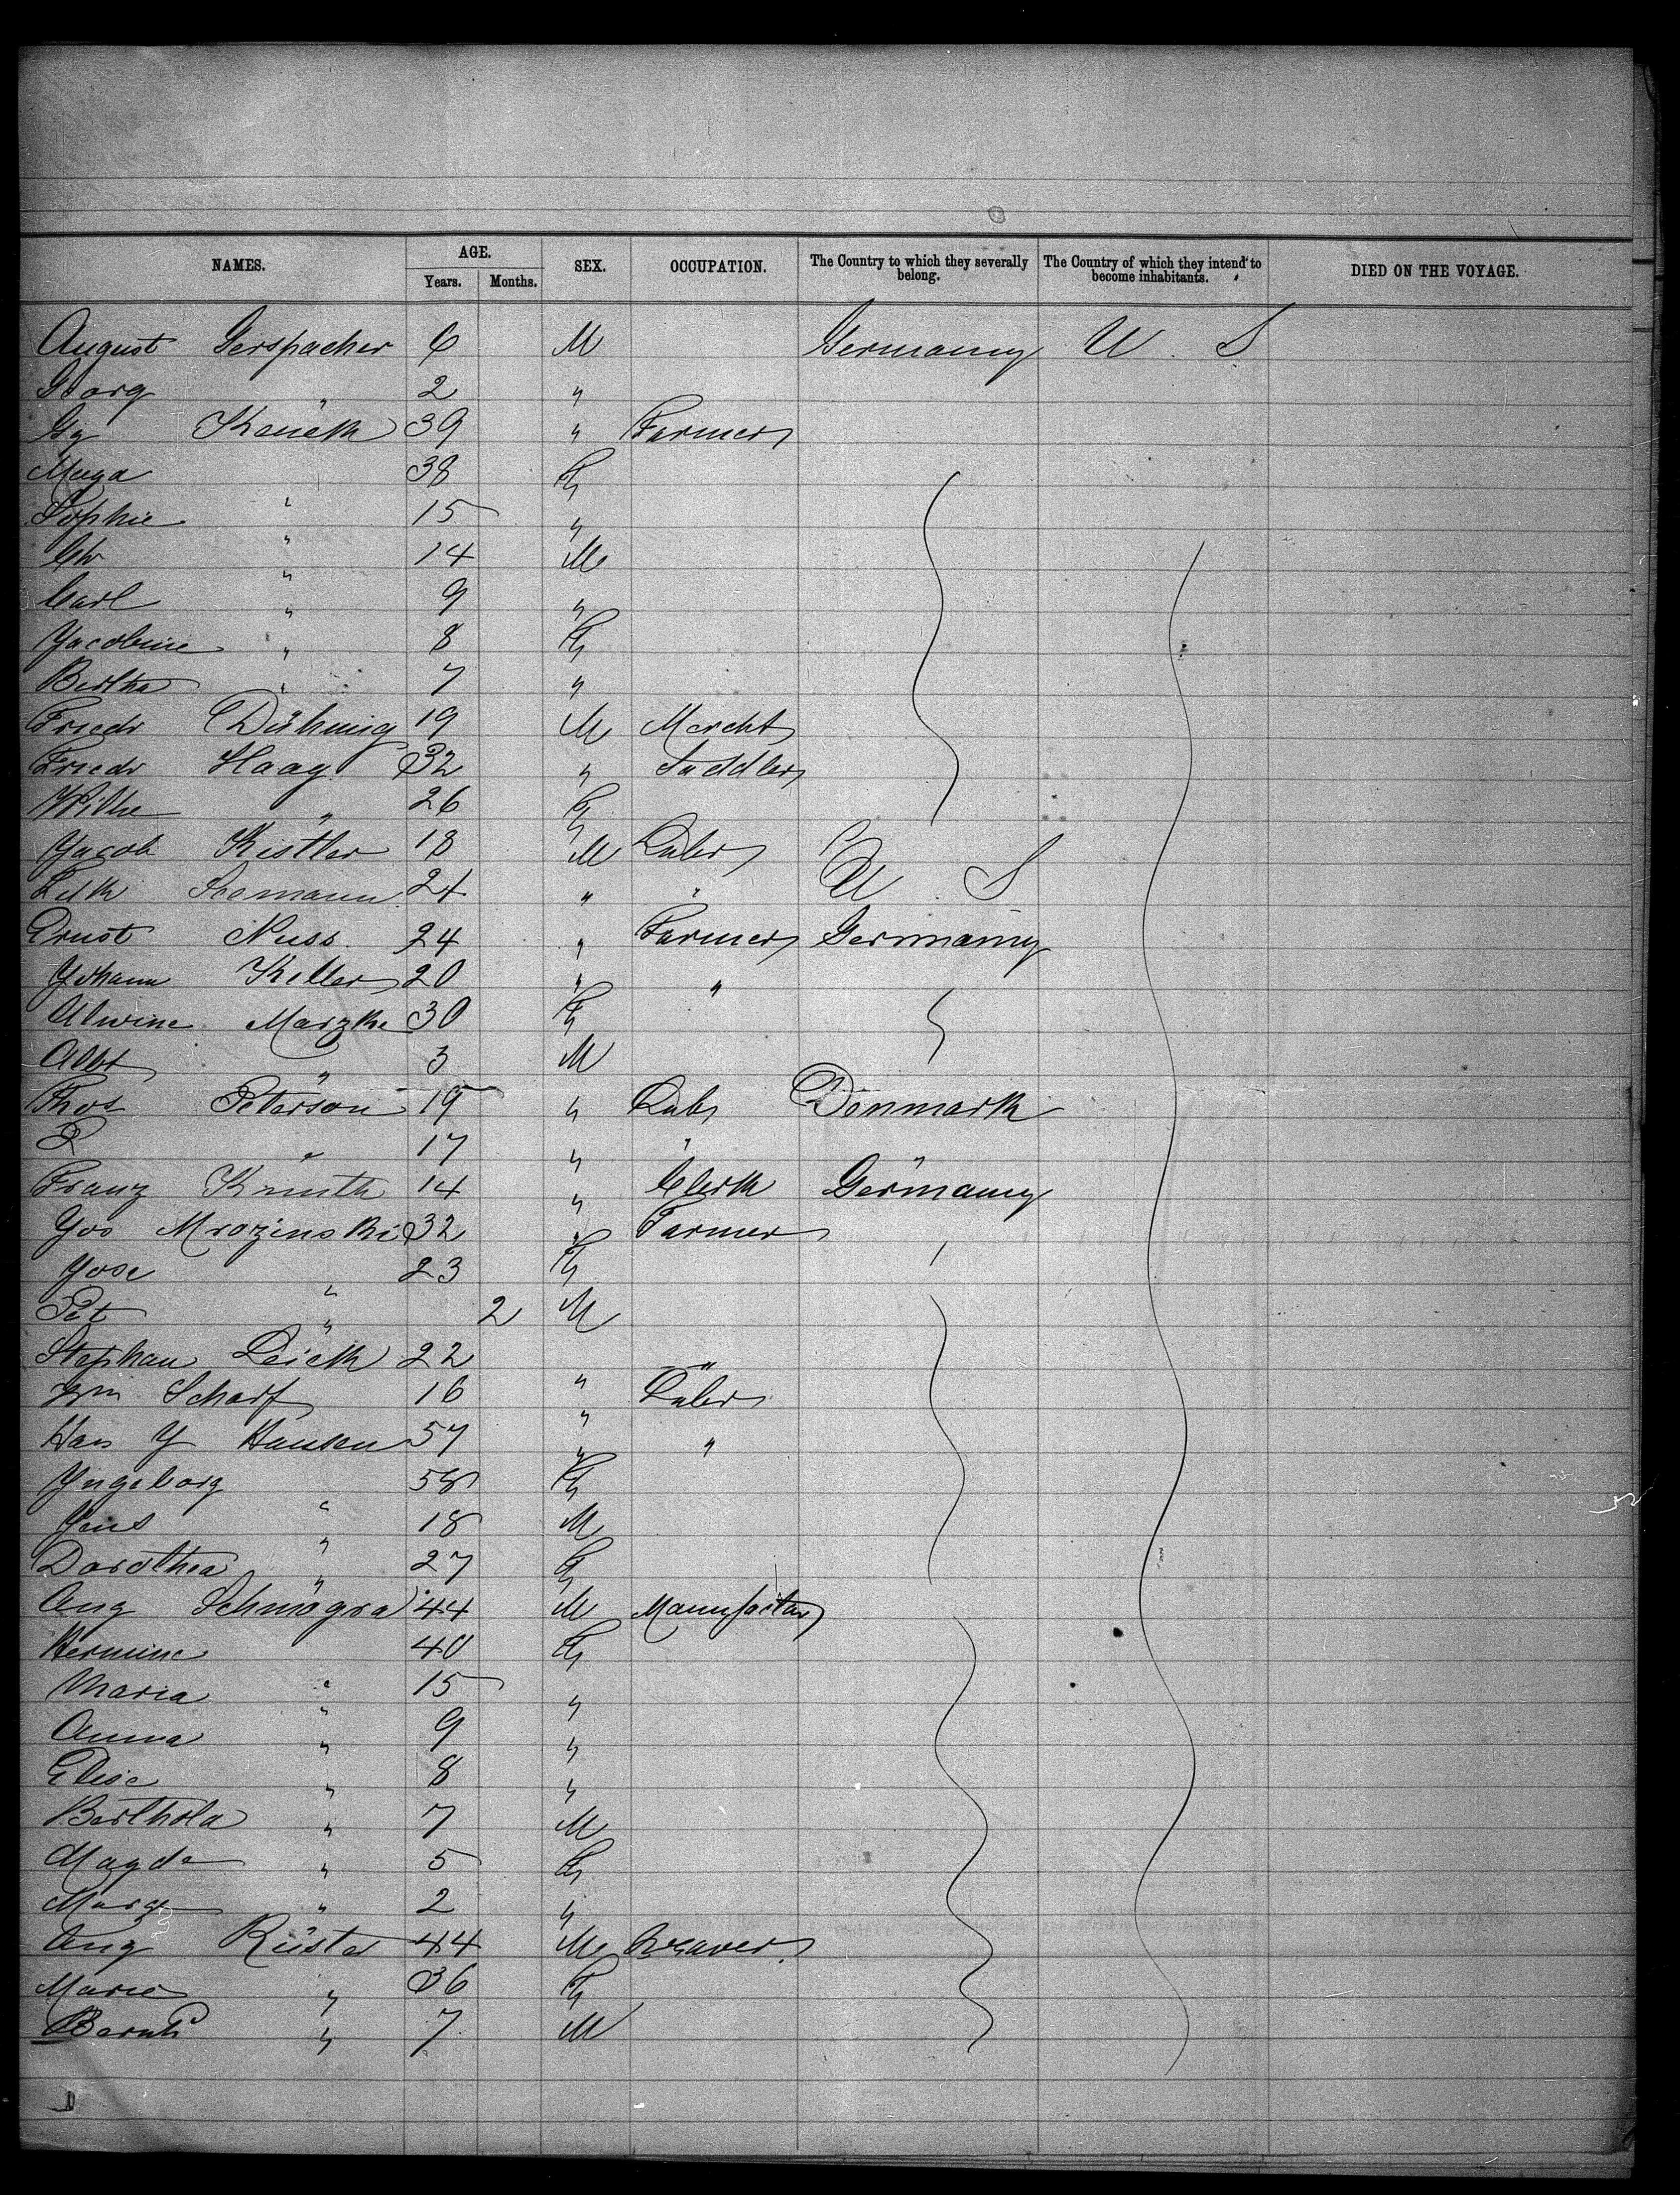 NAMES. AGE. SEX. OCCUPATION. The Country to which they severally belong. The Country of which they intend to become inhabitants. DIED ON THE VOYAGE.
Years. Months.
August Gerspacher 6 M Germany U. S
Georg " 2 "
Gg 39 " Farmer
38 F
Sophie " 15 "
Chr " 14 M
Carl " 9 "
Jacobine " 8 F
Bertha " 7 "
Friedr Dühmig 19 M Mercht
Friedr Haag 32 " Saddler
Wilhe " 26 F
Jacob Kistler 18 M Labr U. S
Seemann 24 " "
Ernst Nuss. 24 " Farmer Germany
Johann Keller 20 " "
Alwine Marzke 30 F
Albt " 3 M
Thos Peterson 19 " Labr Denmark
P " 17 " " "
Franz 14 " Clerk Germany
Jos Mrozinski 32 " Farmer
Jose " 23 F
Pet " 2 M
Stephan Leick 22 " "
Wm Scharf 16 " Labr
Hans J Hansen 57 " "
Ingeborg " 58 F
Jens " 18 M
Dorothea " 27 F
Aug Schmogra 44 M Manufactur
Hermine 40 F
Maria " 15 "
Anna " 9 "
Elise " 8 "
Berthold " 7 M
Magda " 5 F
Marg " 2 "
Aug Rüster 44 M Weaver
Marie " 36 F
Bernh " 7 M